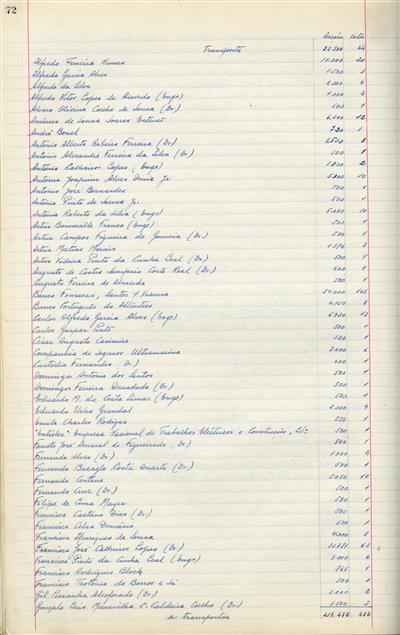 72
Acções Votos
Transporte 22.500 44
Alfredo Ferreira Nunes 10.000 20
Alfredo Garcia Alves 1.500 3
Alfredo da Silva 2.000 4
Alfredo Vitor Lopes de Azevedo (Engo) 1.000 2
Alvaro Oliveira Coelho de Sousa (Dr.) 500 1
Américo de Sousa Soares 6.000 12
André Bonel 720 1
Antonio Alberto Ribeiro Ferreira (Dr.) 1.500 3
Antonio Alexandre Ferreira da Silva (Dr.) 500 1
Antonio Calheiros Lopes (Engo) 2
Antonio Joaquim Alves Diniz Jr. 5.000 10
Antonio José Bernardes 500 1
Antonio Pinto de Sousa Jr. 500 1
Antonio Roberto da Silva (Engo) 5.000 10
Artur Bonneville Franco (Engo) 500 1
Artur Campos Figueira de Gouveia (Dr.) 500 1
Artur Matias Morais 1.576 3
Artur Videira Pinto da Cunha Leal (Dr.) 500 1
Augusto de Castro Sampaio Corte Real (Dr.) 600 1
Augusto Ferreira de Almeida 500 1
Banco Fonsecas, Santos & Vianna
Banco Português do Atlântico 4.150 8
Carlos Alfredo Garcia Alves (Engo) 13
Carlos Gaspar Pinto 500 1
César Augusto Casimiro 500 1
Companhia de Seguros Ultramarina 3.000 6
Custodio Fernandes (Dr.) 1
Domingos Antonio dos Santos 500 1
Domingos Ferreira Deusdado (Dr.) 500 1
Eduardo M. da Costa Limas (Engo) 500 1
Eduardo Ulha Grandal 2.000 4
Emile Charles Rodigas 500 1
Empresa Nacional de Trabalhos Eléctricos e Construção, Lda 500 1
Fausto José Amaral de Figueiredo (Dr.) 500 1
Fernando Alves (Dr.) 1.000 2
Fernando Bugalg Costa Duarte (Dr.) 500 1
Fernando Centeno 5.050 10
Fernando Cruz (Dr.) 500 1
Filipe de Lima Mayer 500 1
Francisco Caetano Dias (Dr.) 500 1
Francisco Celso Domênico 500 1
Francisco Henriques de Sousa 4.000 8
Francisco José Calheiros Lopes (Dr.)
Francisco Pinto da Cunha Leal (Engo) 3.000 6
Francisco Rodrigues Block 765 1
Francisco Teotónio de Barros e Sá 500 1
Gil Possanha Alcoforado (Dr.) 1.000 2
Gonçalo Luis Maravilha C. Caldeira Coelho (Dr.) 1.500 3
a transportar